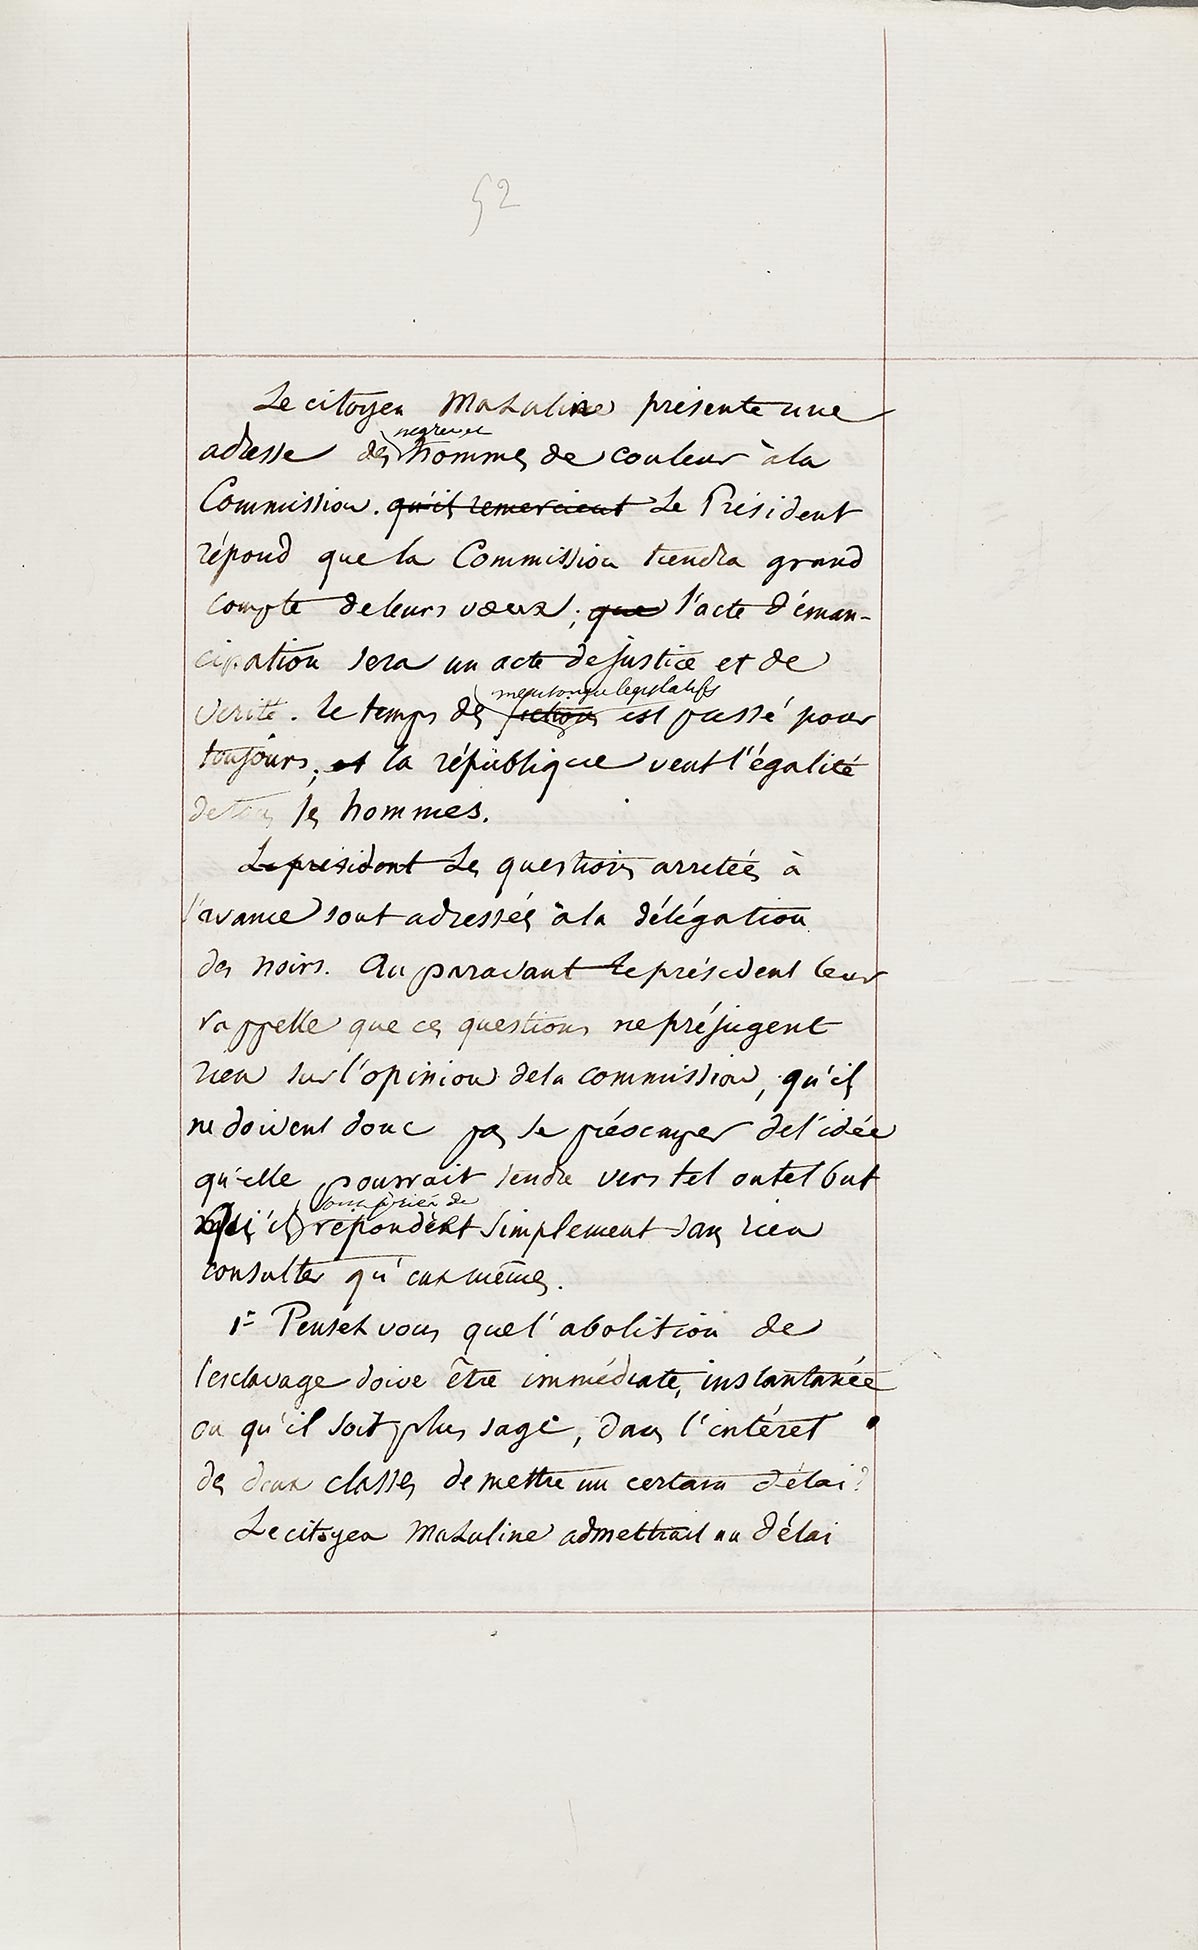 52
Le citoyen Mazuline présente une
adresse des nègres et hommes de couleur à la
Commission. qu'ils remercient Le Président
répond que la Commission tiendra grand
compte de leurs vœux ; que l'acte d'éman-
cipation sera un acte de justice et de
vérité. le temps des fictions mensonges législatifs est passé pour
toujours, et la république veut l'égalité
de tous les hommes.
Le président Les questions arretées à
l'avance sont adressées à la délégation
des noirs. Au paravant le président leur
rappelle que ces questions ne préjugent
rien sur l'opinion de la commission, qu'ils
ne doivent donc pas se préocuper de l'idée
qu'elle pourrait tendre vers tel ou tel but
qu'ils sont priés de répondent simplement sans rien
consulter qu'eux mêmes.
1° Pensez vous que l'abolition de
l'esclavage doive être immédiate, instantanée
ou qu'il soit plus sage, dans l'intéret
des deux classes de mettre un certain délai ?
Le citoyen Mazuline admettrait un délai